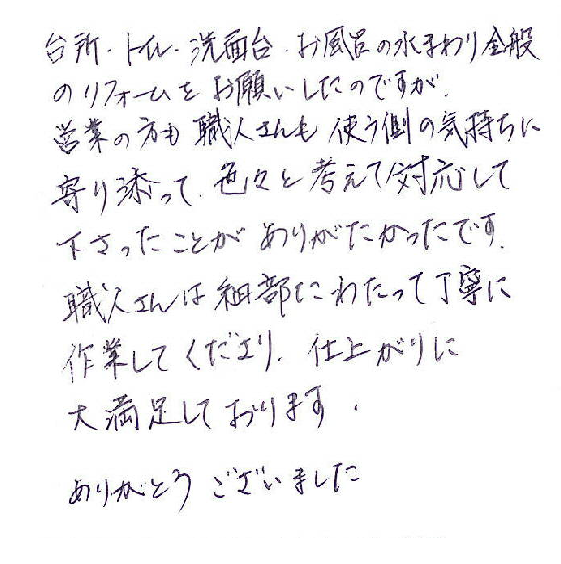 台所・トイレ・洗面台・お風呂の水まわり全般
のリフォームをお願いしたのですが、
営業の方も職人さんも使う側の気持ちに
寄り添って、色々と考えて対応して
下さったことがありがたかったです。
職人さんは細部にわたって丁寧に
作業してくださり、仕上がりに
大満足しております。
ありがとうございました